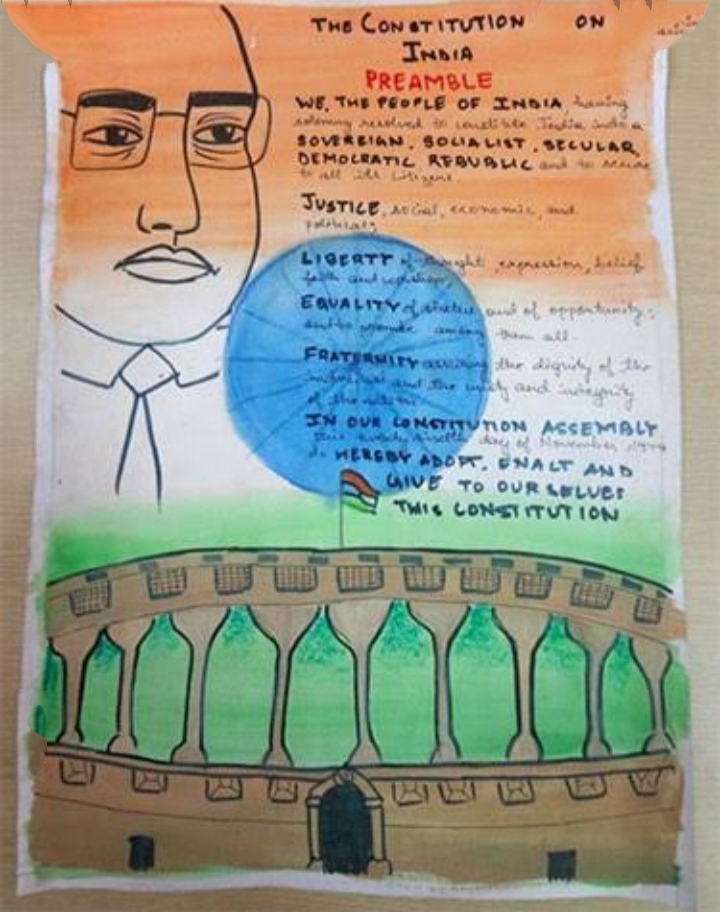 THE CONSTITUTION ON
INDIA
PREAMBLE
WE, THE PEOPLE OF INDIA, having
solemny resolved to constitute India into a
SOVEREIGN, SOCIALIST, SECULAR,
DEMOCRATIC REPUBLIC and to secure
to all its citizens.
JUSTICE, social, economic, and
political;
LIBERTY of thought, expression, belief
faith and worship;
EQUALITY of status and of opportunity;
and to promote among them all.
FRATERNITY assuring the dignity of the
individual and the unity and integrity
of the nation.
IN OUR CONSTITUTION ASSEMBLY
this twenty sixth day of November 1949
do HEREBY ADOPT, ENALT AND
GIVE TO OURSELVES
THIS CONSTITUTION